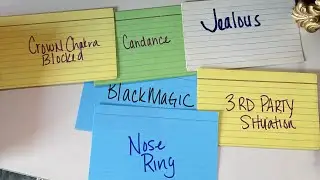 Crown Chakra
Blocked
Candance
Jealous
Black Magic
3RD PARTY
SituATion
Nose
Ring